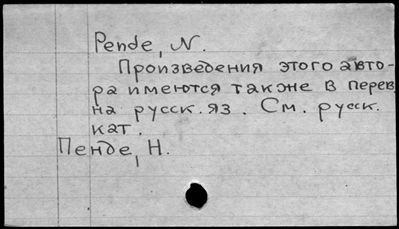 Pende, N.
Произведения этого авто-
ра имеются также в перев.
на русск. яз. См. русск.
кат.
Пенде, Н.